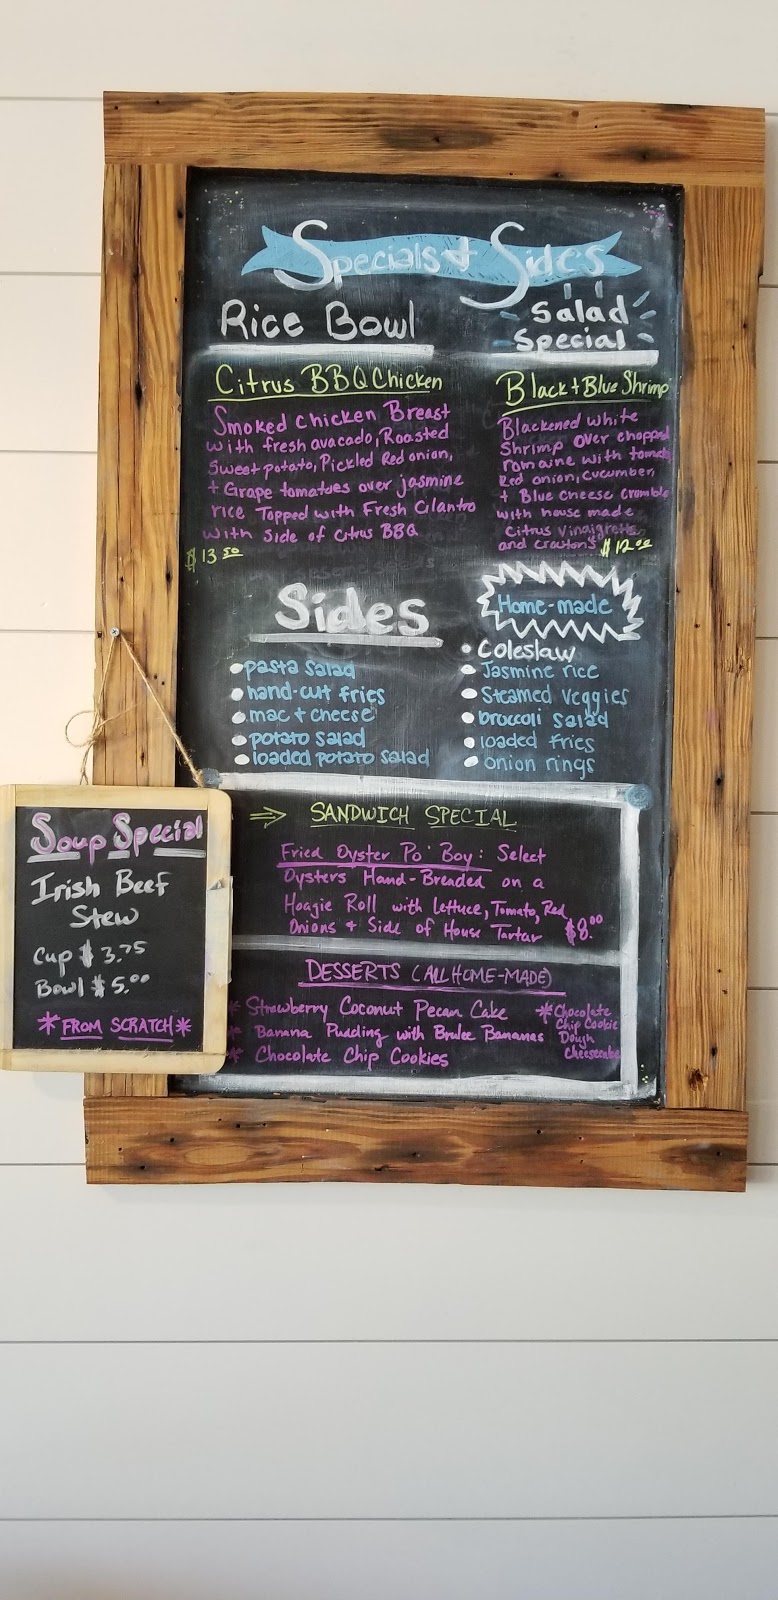 Specials + Sides
Rice Bowl
Citrus BBQ Chicken
Smoked Chicken Breast
with fresh avacado, Roasted
Sweet potato, Pickled Red onion,
+ Grape tomatoes over jasmine
rice Topped with Fresh Cilantro
with side of Citrus BBQ
$13.50
Salad
Special
Black + Blue Shrimp
Blackened white
Shrimp over chopped
romaine with tomato
Red onion, cucumber,
+ Blue cheese crumble
with house made
citrus vinaigrette
and croutons $12.00
Sides
Home-made
pasta salad
hand-cut fries
mac + cheese
potato salad
loaded potato salad
Coleslaw
Jasmine rice
Steamed veggies
broccoli salad
loaded fries
onion rings
SANDWICH SPECIAL
Fried Oyster Po' Boy: Select
Oysters Hand-Breaded on a
Hoagie Roll with lettuce, Tomato, Red
Onions + Side of House Tartar $8.00
DESSERTS (ALL HOME-MADE)
* Strawberry Coconut Pecan Cake
* Banana Pudding with Brulee Bananas
* Chocolate Chip Cookies
* Chocolate
Chip Cookie
Dough
Cheesecake
Soup Special
Irish Beef
Stew
Cup $3.75
Bowl $5.00
* FROM SCRATCH *